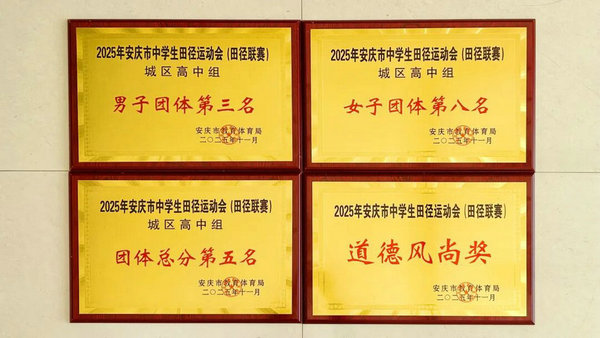 2025年安庆市中学生田径运动会(田径联赛)
城区高中组
男子团体第三名
安庆市教育体育局
二〇二五年十一月
2025年安庆市中学生田径运动会(田径联赛)
城区高中组
女子团体第八名
安庆市教育体育局
二〇二五年十一月
2025年安庆市中学生田径运动会(田径联赛)
城区高中组
团体总分第五名
安庆市教育体育局
二〇二五年十一月
2025年安庆市中学生田径运动会(田径联赛)
道德风尚奖
安庆市教育体育局
二〇二五年十一月